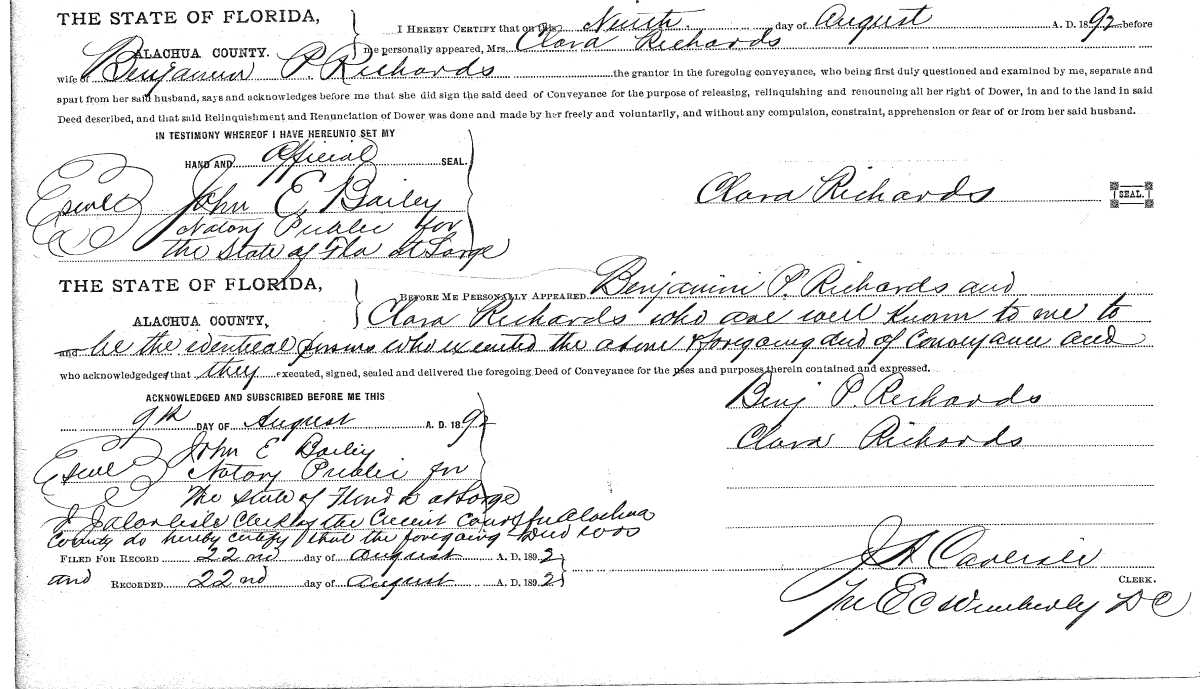 THE STATE OF FLORIDA,
ALACHUA COUNTY.
I HEREBY CERTIFY that on this Ninth day of August A. D. 1892 before
me personally appeared, Mrs. Clara Richards
wife of Benjamin P. Richards the grantor in the foregoing conveyance, who being first duly questioned and examined by me, separate and
apart from her said husband, says and acknowledges before me that she did sign the said deed of Conveyance for the purpose of releasing, relinquishing and renouncing all her right of Dower, in and to the land in said
Deed described, and that said Relinquishment and Renunciation of Dower was done and made by her freely and voluntarily, and without any compulsion, constraint, apprehension or fear of or from her said husband.
IN TESTIMONY WHEREOF I HAVE HEREUNTO SET MY
HAND AND Official SEAL.
Seal John E. Bailey
Notary Public for
the State of Fla at Large
Clara Richards SEAL.
THE STATE OF FLORIDA,
ALACHUA COUNTY,
BEFORE ME PERSONALLY APPEARED Benjamin P. Richards and
Clara Richards who are well known to me to
and be the identical persons who executed the above & foregoing deed of Conveyance and
who acknowledged that they executed, signed, sealed and delivered the foregoing Deed of Conveyance for the uses and purposes therein contained and expressed.
ACKNOWLEDGED AND SUBSCRIBED BEFORE ME THIS
9th DAY OF August A. D. 1892
Seal John E Bailey
Notary Public for
The State of Florida at Large
Benj P. Richards
Clara Richards
I J A Carlisle Clerk of the Circuit Court for Alachua
County do hereby certify that the foregoing Deed was
FILED FOR RECORD 22nd day of August A. D. 1892
and RECORDED 22nd day of August A. D. 1892
J A Carlisle
CLERK.
Per E C Wimberly D C